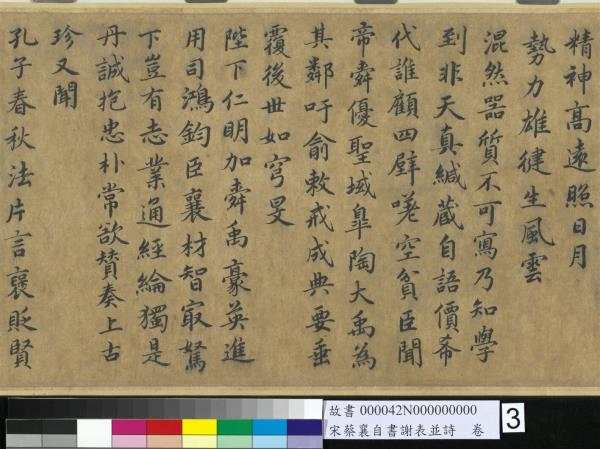 精神高遠照日月
勢力雄健生風雲
混然器質不可寫乃知學
到非天真緘藏自語價希
代誰顧四壁嗟空貧臣聞
帝舜優聖域皐陶大禹為
其鄰吁俞敕戒成典要垂
覆後世如穹旻
陛下仁明加舜禹豪英進
用司鴻鈞臣襄材智最駑
下豈有志業通經綸獨是
丹誠抱忠朴常欲贊奏上古
珍又聞
孔子春秋法片言襃貶賢
故書 000042N000000000
宋蔡襄自書謝表並詩 卷
3